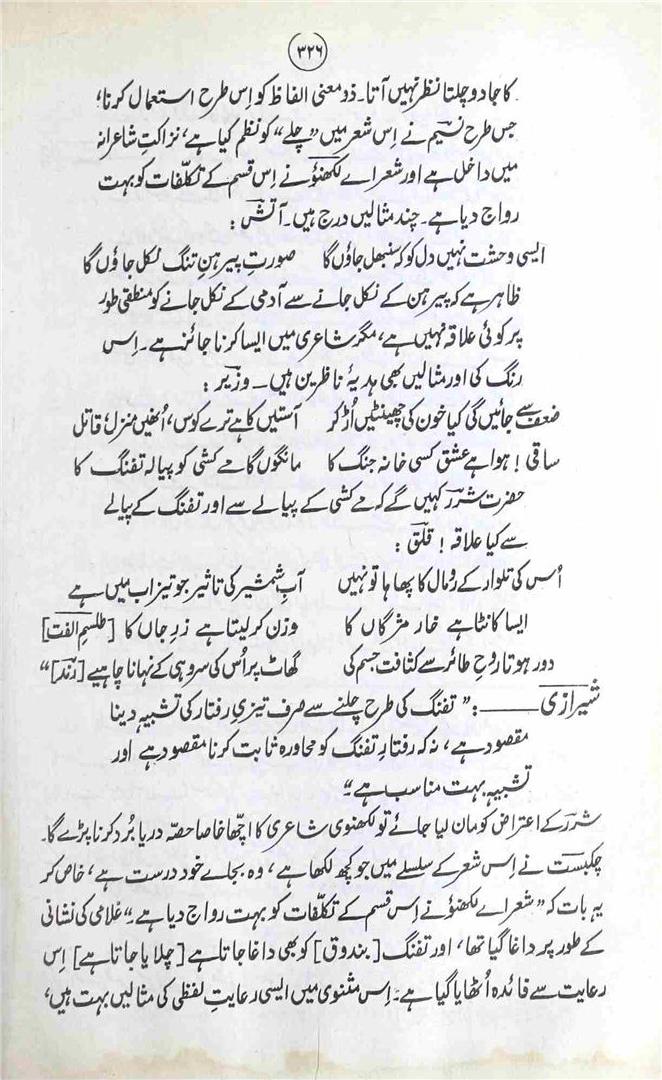 ۳۲۶
کا جادو چلتا نظر نہیں آتا۔ ذو معنی الفاظ کو اِس طرح استعمال کرنا،
جس طرح نسیم نے اِس شعر میں ”چلے“ کو نظم کیا ہے، نزاکتِ شاعرانہ
میں داخل ہے اور شعراے لکھنؤ نے اِس قسم کے تکلّفات کو بہت
رواج دیا ہے۔ چند مثالیں درج ہیں۔ آتش :
ایسی وحشت نہیں دل کو کہ سنبھل جاؤں گا صورتِ پیرہنِ تنگ نکل جاؤں گا
ظاہر ہے کہ پیرہن کے نکل جانے سے آدمی کے نکل جانے کو منطقی طور
پر کوئی علاقہ نہیں ہے، مگر شاعری میں ایسا کرنا جائز ہے۔ اِس
رنگ کی اور مثالیں بھی ہدیۂ ناظرین ہیں۔ وزیر :
ضعف سے جائیں گی کیا خون کی چھینٹیں اُڑ کر آستیں کا ہے ترے کوس، اُنھیں منزل، قاتل
ساقی ! ہوا ہے عشق کسی خانہ جنگ کا مانگوں گا مے کشی کو پیالہ تفنگ کا
حضرت شرر کہیں گے کہ مے کشی کے پیالے سے اور تفنگ کے پیالے
سے کیا علاقہ ! قلق :
اُس کی تلوار کے رُمال کا پھاہا تو نہیں آبِ شمشیر کی تاثیر جو تیزاب میں ہے
ایسا کانٹا ہے خارِ مژگاں کا وزن کر لیتا ہے زرِ جاں کا [طلسمِ الفت]
دور ہوتا روحِ طائر سے کثافت جسم کی گھاٹ پر اُس کی سروہی کے نہانا چاہیے [رند]“
شیرازی ــــــ : ” تفنگ کی طرح چلنے سے صرف تیزیِ رفتار کی تشبیہ دینا
مقصود ہے، نہ کہ رفتارِ تفنگ کو محاورہ ثابت کرنا مقصود ہے اور
تشبیہ بہت مناسب ہے۔“
شرر کے اعتراض کو مان لیا جائے تو لکھنوی شاعری کا اچھا خاصا حصّہ دریا بُرد کرنا پڑے گا۔
چکبست نے اِس شعر کے سلسلے میں جو کچھ لکھا ہے، وہ بجاے خود درست ہے، خاص کر
یہ بات کہ ”شعراے لکھنؤ نے اِس قسم کے تکلّفات کو بہت رواج دیا ہے۔“ غلامی کی نشانی
کے طور پر داغا گیا تھا، اور تفنگ [بندوق] کو بھی داغا جاتا ہے [چلایا جاتا ہے] اِس
رعایت سے فائدہ اُٹھایا گیا ہے۔ اِس مثنوی میں ایسی رعایتِ لفظی کی مثالیں بہت ہیں،